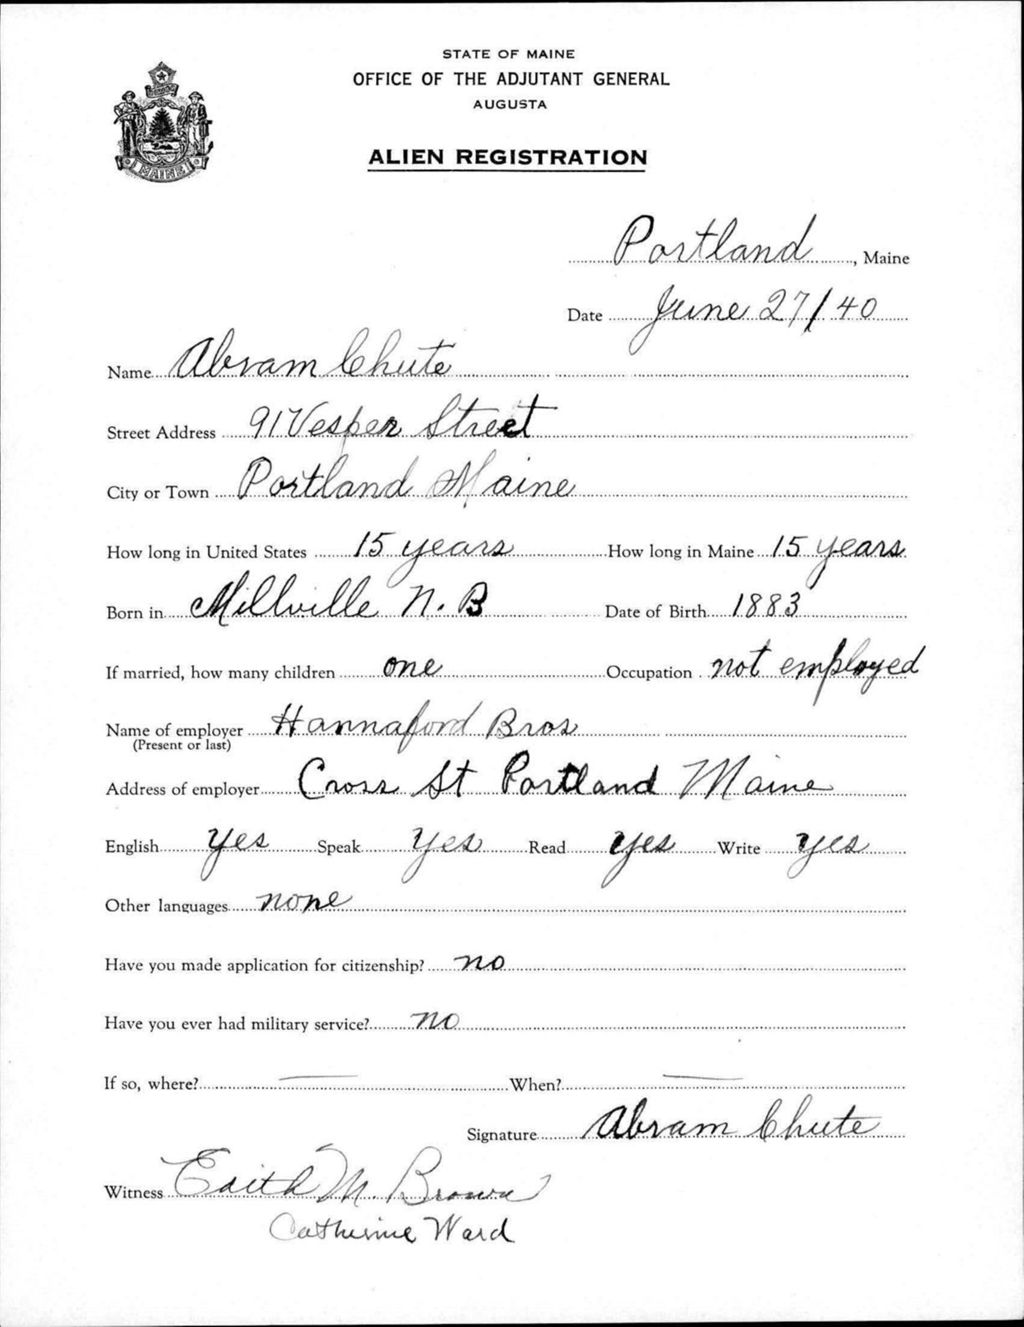 STATE OF MAINE
OFFICE OF THE ADJUTANT GENERAL
AUGUSTA
ALIEN REGISTRATION
MAINE
Portland, Maine
Date June 27/40
Name Abram Chute
Street Address 91 Vesper Street
City or Town Portland Maine
How long in United States 15 years How long in Maine 15 years
Born in Millville N. B Date of Birth 1883
If married, how many children one Occupation not employed
Name of employer Hannaford Bros
(Present or last)
Address of employer Cross St Portland Maine
English yes Speak yes Read yes Write yes
Other languages none
Have you made application for citizenship? no
Have you ever had military service? no
If so, where? — When? —
Signature Abram Chute
Witness Edith M. Brown
Catherine Ward